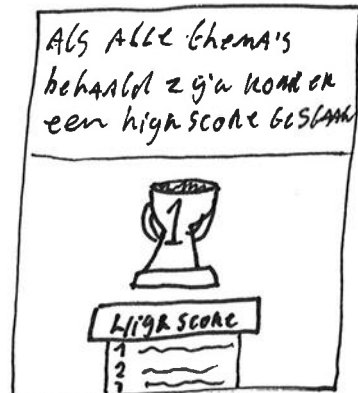 Als Alle thema's
behaald zijn komt er
een highscore
1
High score
1
2
3